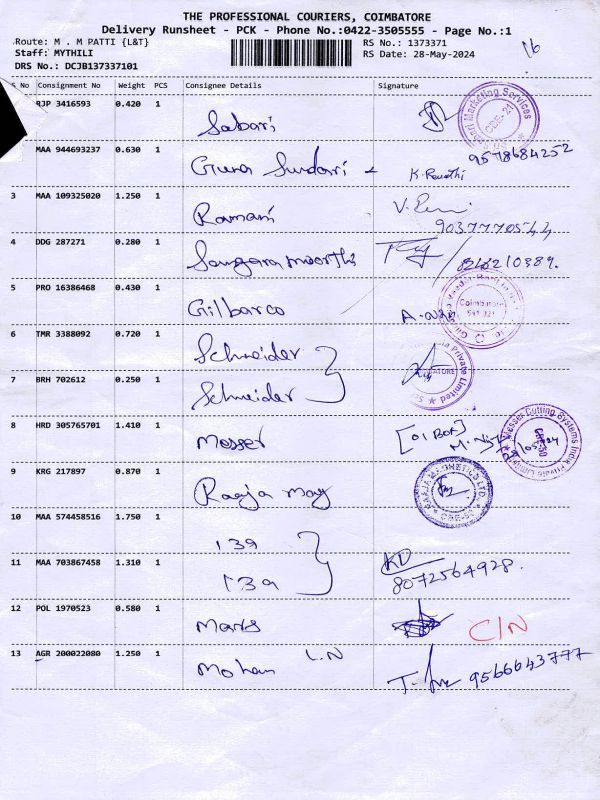 THE PROFESSIONAL COURIERS, COIMBATORE
Delivery Runsheet - PCK - Phone No.:0422-3505555 - Page No.:1
Route: M . M PATTI {L&T} RS No.: 1373371
Staff: MYTHILI RS Date: 28-May-2024 16
DRS No.: DCJB137337101
No Consignment No Weight PCS Consignee Details Signature
RJP 3416593 0.420 1
Sabari
MAA 944693237 0.630 1
Guna Sundari K. Revathi 9578684252
3 MAA 109325020 1.250 1
Ramani 9037770544
4 DDG 287271 0.280 1
Sangaramoorthi
5 PRO 16386468 0.430 1
Gilbarco Coimbatore
6 TMR 3388092 0.720 1
Schneider
7 BRH 702612 0.250 1
Schneider Private Limited
8 HRD 305765701 1.410 1
Messer [01 Box] Messer Cutting Systems India Private Limited
9 KRG 217897 0.870 1
Raaja mag RAAJA MAGNETICS LTD.
10 MAA 574458516 1.750 1
139
11 MAA 703867458 1.310 1
139 KD
8072564928.
12 POL 1970523 0.580 1
Mars C/N
13 AGR 200022080 1.250 1
Mohan L.N 9566643777